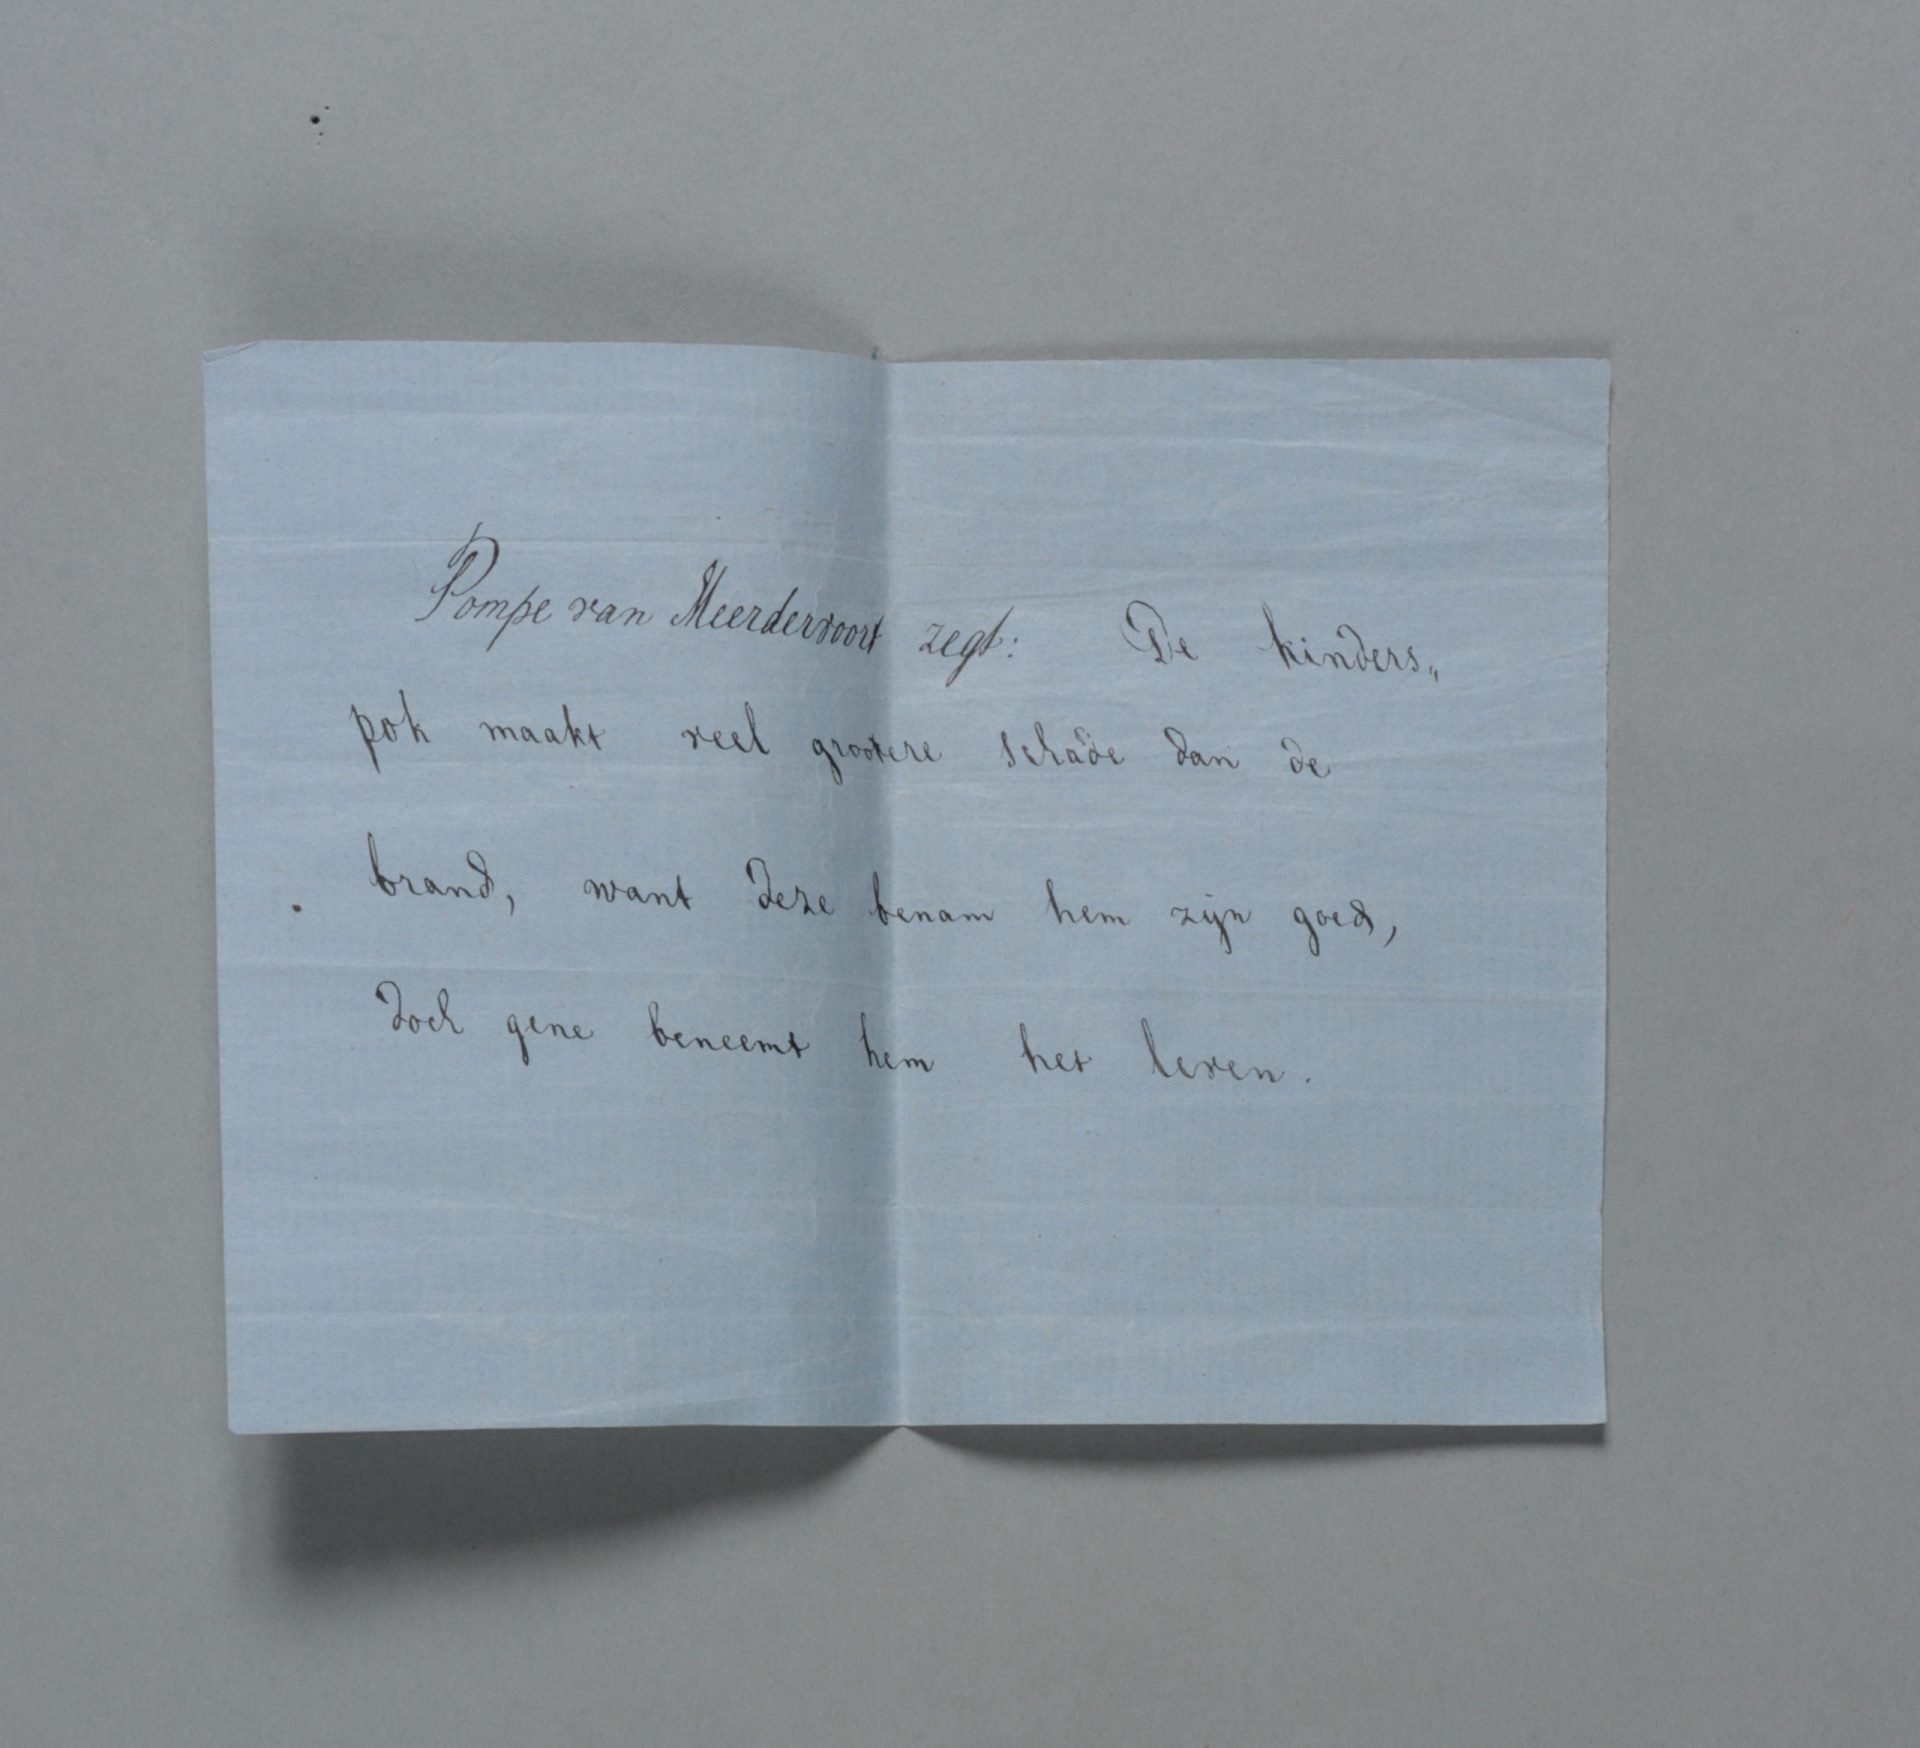 Pompe van Meerdervoort zegt: De kinders„
pok maakt veel grootere schade dan de
brand, want deze benam hem zijn goed,
doch gene beneemt hem het leven.